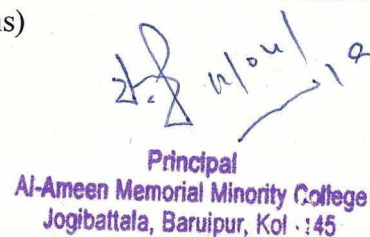 s)
Principal
Al-Ameen Memorial Minority College
Jogibattala, Baruipur, Kol - 145